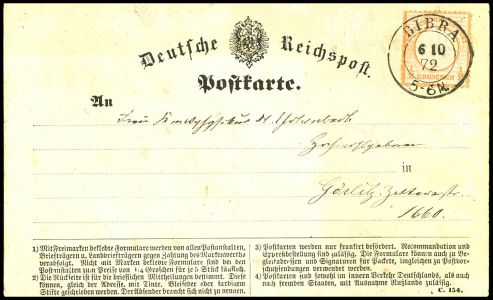 Deutsche Reichspost.
BIBRA
6 10
72
5-6N.
GROSCHEN
Postkarte.
An
Frau
in
Görlitz.
1660.
1) Mit Freimarken beklebte Formulare werden von allen Postanstalten,
Briefträgern u. Landbriefträgern gegen Zahlung des Markenwerths
verabfolgt. Nicht mit Marken beklebte Formulare sind bei den
Postanstalten zum Preise von 1/4 Groschen für je 5 Stück käuflich.
2) Die Rückseite ist für die brieflichen Mittheilungen bestimmt. Diese
können, gleich der Adresse, mit Tinte, Bleifeder oder farbigem
Stifte geschrieben werden. Der Absender braucht sich nicht zu nennen.
3) Postkarten werden nur frankirt befördert. Recommandation und
Expreßbestellung sind zulässig. Die Formulare können auch zu Be-
gleitadressen und Signaturen für Packete, ingleichen zu Postvor-
schußsendungen verwendet werden.
4) Postkarten sind sowohl im innern Verkehr Deutschlands, als auch
nach fremden Staaten, mit Ausnahme Rußlands zulässig.
C. 154.